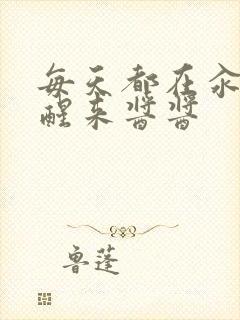 每天都在汆
醒来酱酱
鲁蓬